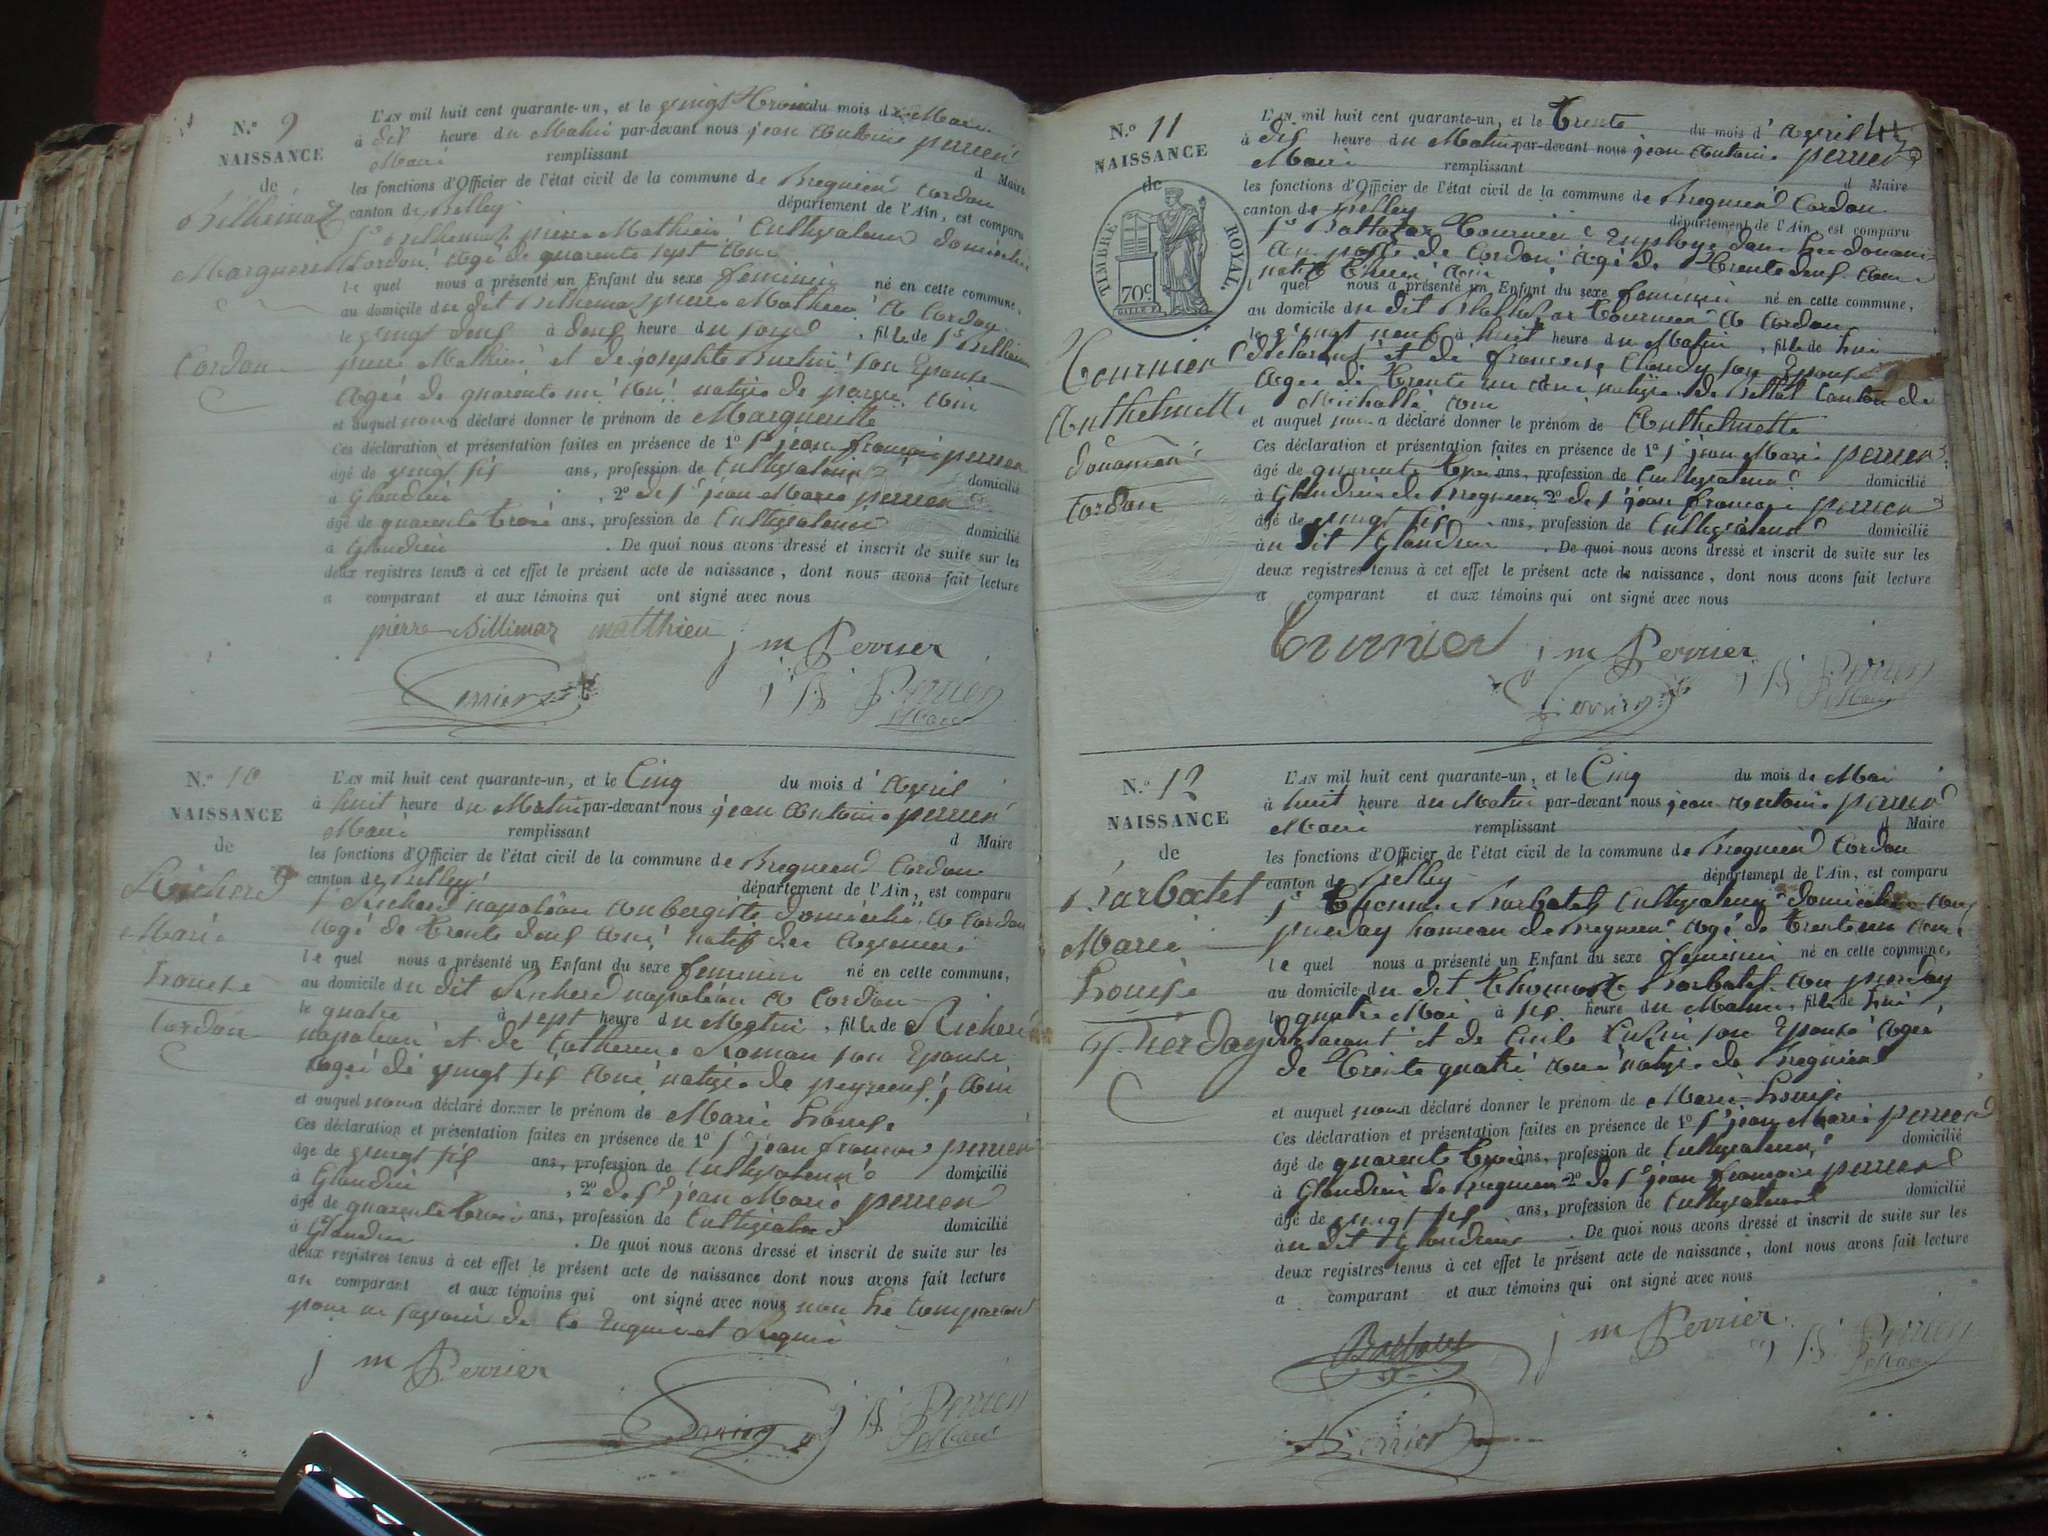 N.º 9
NAISSANCE
de
Marguerite
Cordon
L'AN mil huit cent quarante-un, et le vingt trois du mois de Mars
à dix heure du Matin par-devant nous jean Antoine perrier
Maire remplissant d Maire
les fonctions d'Officier de l'état civil de la commune de Bregnier Cordon
canton de Belley département de l'Ain, est comparu
pierre Mathieu Cultivateur domicilié
Cordon agé de quarente sept ans
le quel nous a présenté un Enfant du sexe feminin né en cette commune,
au domicile du dit pierre Mathieu a Cordon
le vingt deux à deux heure du soir, fille de
pierre Mathieu et de josephte son Epouse
Agée de quarente un ans native de
et auquel nous a déclaré donner le prénom de Margueritte
Ces déclaration et présentation faites en présence de 1º Sr jean françois perrier
âgé de vingt six ans, profession de Cultivateur domicilié
à Glandieu, 2º de Sr jean Marie perrier
âgé de quarente trois ans, profession de Cultivateur domicilié
à Glandieu. De quoi nous avons dressé et inscrit de suite sur les
deux registres tenus à cet effet le présent acte de naissance, dont nous avons fait lecture
a comparant et aux témoins qui ont signé avec nous
pierre Billimaz matthieu j m Perrier
Perrier j A Perrier
Maire
N.º 10
NAISSANCE
de
Richerd
Marie
Louise
Cordon
L'AN mil huit cent quarante-un, et le Cinq du mois d'Avril
à huit heure du Matin par-devant nous jean Antoine perrier
Maire remplissant d Maire
les fonctions d'Officier de l'état civil de la commune de Bregnier Cordon
canton de Belley département de l'Ain, est comparu
Sr Richerd napoléon Aubergiste domicilié a Cordon
Agé de trente deux ans natif des
le quel nous a présenté un Enfant du sexe feminin né en cette commune,
au domicile du dit Richerd napoléon a Cordon
le quatre à sept heure du Matin, fille de Richerd
napoléon et de Catherine Roman son Epouse
Agée de vingt six ans native de
et auquel nous a déclaré donner le prénom de Marie Louise
Ces déclaration et présentation faites en présence de 1º Sr jean françois perrier
âgé de vingt six ans, profession de Cultivateur domicilié
à Glandieu, 2º de Sr jean Marie perrier
âgé de quarente trois ans, profession de Cultivateur domicilié
à Glandieu. De quoi nous avons dressé et inscrit de suite sur les
deux registres tenus à cet effet le présent acte de naissance dont nous avons fait lecture
au comparant et aux témoins qui ont signé avec nous non le comparant
pour ne savoir de ce Enquis et Requis
j m Perrier
Perrier j A Perrier
Maire
N.º 11
NAISSANCE
de
TIMBRE ROYAL.
70c
Tournier
Anthelmette
douanier
Cordon
L'AN mil huit cent quarante-un, et le Trente du mois d'Avril
à dix heure du Matin par-devant nous jean Antoine perrier
Maire remplissant d Maire
les fonctions d'Officier de l'état civil de la commune de Bregnier Cordon
canton de Belley département de l'Ain, est comparu
Sr Baltazar Tournier Employé dans les douanes
au poste de Cordon agé de trente deux ans
l quel nous a présenté un Enfant du sexe feminin né en cette commune,
au domicile du dit Balthazar Tournier a Cordon
le vingt neuf à huit heure du Matin, fille de lui
déclarant et de françoise Claudy son Epouse
Agée de trente un ans native de Canton de
et auquel nous a déclaré donner le prénom de Anthelmette
Ces déclaration et présentation faites en présence de 1º Sr jean Marie perrier
âgé de quarente trois ans, profession de Cultivateur domicilié
à Glandieu de Bregnier 2º de Sr jean françois perrier
âgé de vingt six ans, profession de Cultivateur domicilié
au dit Glandieu. De quoi nous avons dressé et inscrit de suite sur les
deux registres tenus à cet effet le présent acte de naissance, dont nous avons fait lecture
a comparant et aux témoins qui ont signé avec nous
Tournier j m Perrier
Perrier j A Perrier
Maire
N.º 12
NAISSANCE
de
Barbatel
Marie
Louise
L'AN mil huit cent quarante-un, et le Cinq du mois de Mai
à huit heure du Matin par-devant nous jean Antoine perrier
Maire remplissant d Maire
les fonctions d'Officier de l'état civil de la commune de Bregnier Cordon
canton de Belley département de l'Ain, est comparu
Sr Thomas Barbatel Cultivateur domicilié au
hameau de Bregnier agé de trente un ans
le quel nous a présenté un Enfant du sexe feminin né en cette commune,
au domicile du dit Thomas Barbatel au
le quatre Mai à six heure du Matin, fille de lui
déclarant et de son Epouse Agée
de trente quatre ans native de Bregnier
et auquel nous a déclaré donner le prénom de Marie Louise
Ces déclaration et présentation faites en présence de 1º Sr jean Marie perrier
âgé de quarente trois ans, profession de Cultivateur domicilié
à Glandieu de Bregnier 2º de Sr jean françois perrier
âgé de vingt six ans, profession de Cultivateur domicilié
au dit Glandieu. De quoi nous avons dressé et inscrit de suite sur les
deux registres tenus à cet effet le présent acte de naissance, dont nous avons fait lecture
a comparant et aux témoins qui ont signé avec nous
j m Perrier
j A Perrier
Maire
Perrier